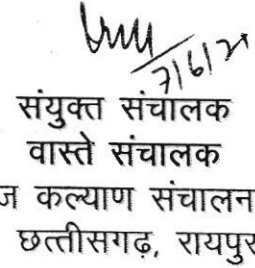 7/6/21
संयुक्त संचालक
वास्ते संचालक
ज कल्याण संचालन
छत्तीसगढ़, रायपुर